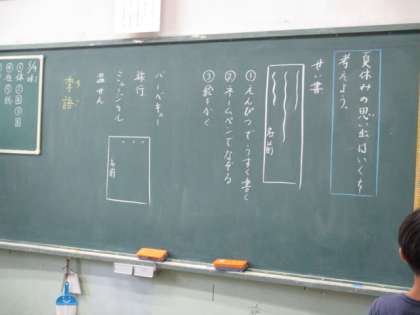 夏休みの思い出はいくを
考えよう。
せい書
名前
①えんぴつでうすく書く
②ネームペンでなぞる
③絵をかく
バーベキュー
旅行
ミュージカル
温せん
名前
きご
季語